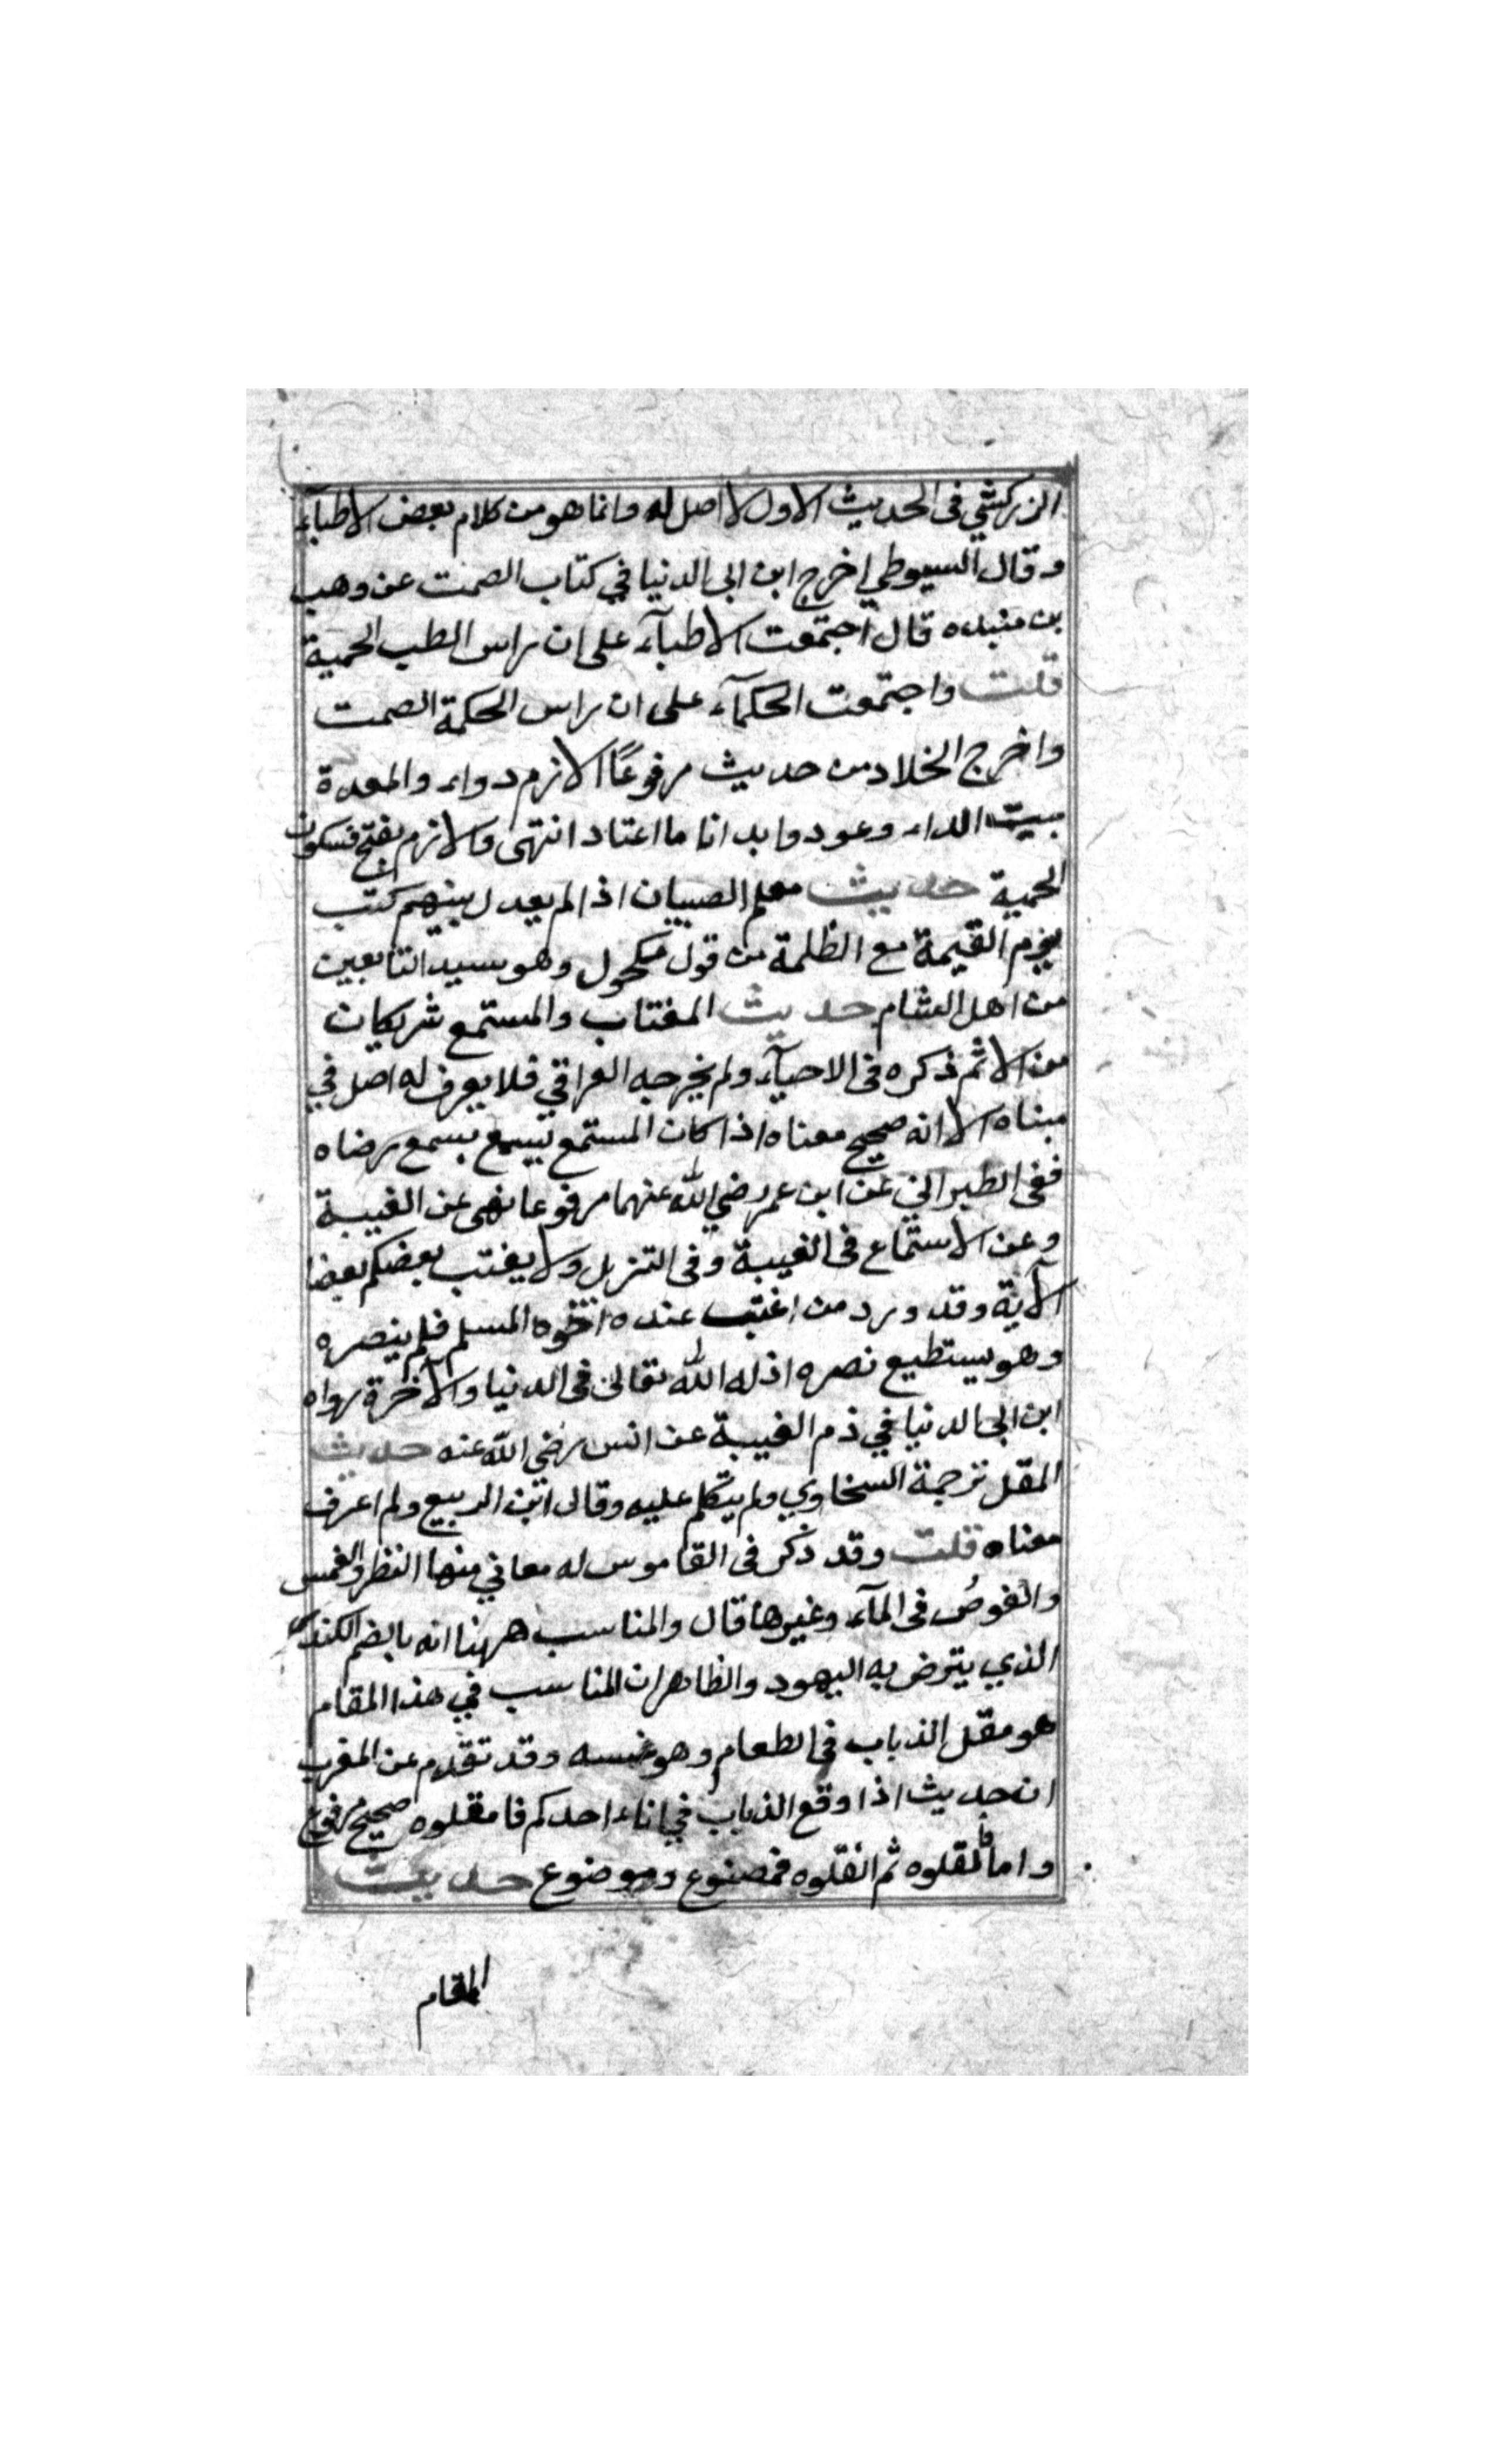 الزركشي في الحديث الاول لا اصل له وانما هو من كلام بعض الاطبآء
وقال السيوطي اخرج ابن ابي الدنيا في كتاب الصمت عن وهب
بن منبه قال اجتمعت الاطبآء على ان راس الطب الحمية
قلت واجتمعت الحكمآء على ان راس الحكمة الصمت
واخرج الخلاد من حديث مرفوعًا الازم دواء والمعدة
بيت الداء وعودوا بدانا ما اعتاد انتهى والازم بفتح فسكون
الحمية حديث معلم الصبيان اذا لم يعدل بينهم كتب
يوم القيمة مع الظلمة من قول مكحول وهو سيد التابعين
من اهل الشام حديث المغتاب والمستمع شريكان
من الاثم ذكره في الاحيآء ولم يخرجه العراقي فلا يعرف له اصل في
مبناه الا انه صحيح معناه اذا كان المستمع يسمع بسمع رضاه
ففي الطبراني عن ابن عمر رضي الله عنهما مرفوعا نهى عن الغيبة
وعن الاستماع في الغيبة وفي التنزيل ولا يغتب بعضكم بعضا
الآية وقد ورد من اغتب عنده اخوه المسلم فلم ينصره
وهو يستطيع نصره اذله الله تعالى في الدنيا والآخرة رواه
ابن ابي الدنيا في ذم الغيبة عن انس رضي الله عنه حديث
المقل ترجمة السخاوي ولم يتكلم عليه وقال ابن الربيع ولم اعرف
معناه قلت وقد ذكر في القاموس له معاني منها النظر والغمس
والغوص في المآء وغيرها قال والمناسب ههنا انه بالضم الكندر
الذي يترض به اليهود والظاهر ان المناسب في هذا المقام
هو مقل الذباب في الطعام وهو غمسه وقد تقدم عن المغرب
ان حديث اذا وقع الذباب في اناء احدكم فامقلوه صحيح مرفوع
واما فامقلوه ثم انقلوه فمصنوع وموضوع حديث
المقام